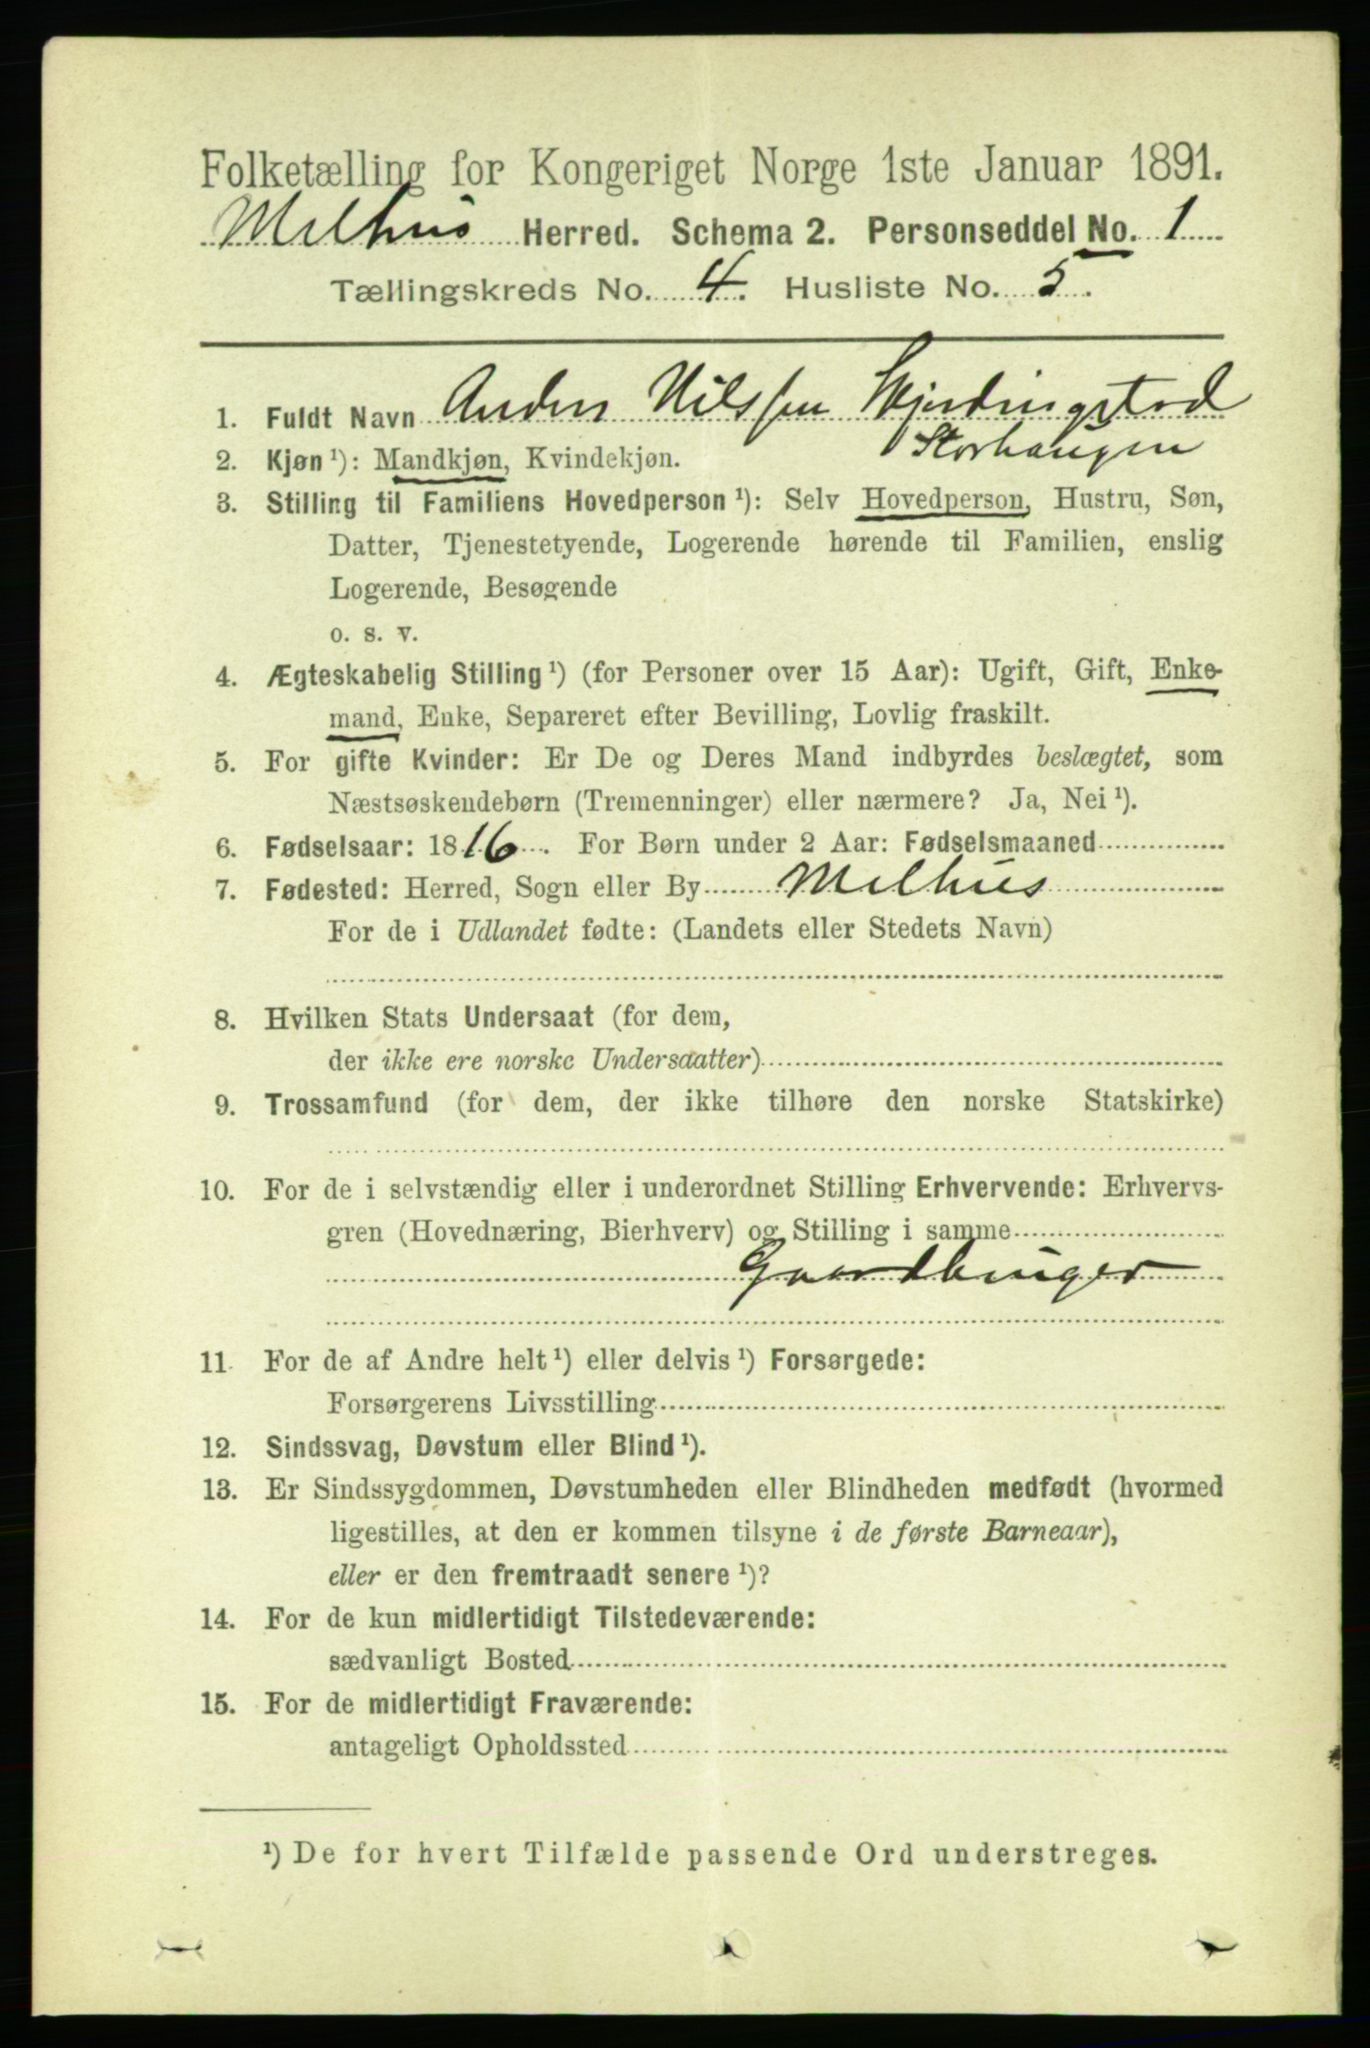 Folketælling for Kongeriget Norge 1ste Januar 1891.
Melhus Herred. Schema 2. Personseddel No. 1
Tællingskreds No. 4. Husliste No. 5.
1. Fuldt Navn Anders Nilssen Skjerdingstad
Storhaugen
2. Kjøn¹): Mandkjøn, Kvindekjøn.
3. Stilling til Familiens Hovedperson¹): Selv Hovedperson, Hustru, Søn,
Datter, Tjenestetyende, Logerende hørende til Familien, enslig
Logerende, Besøgende
o. s. v.
4. Ægteskabelig Stilling¹) (for Personer over 15 Aar): Ugift, Gift, Enke-
mand, Enke, Separeret efter Bevilling, Lovlig fraskilt.
5. For gifte Kvinder: Er De og Deres Mand indbyrdes beslægtet, som
Næstsøskendebørn (Tremenninger) eller nærmere? Ja, Nei¹).
6. Fødselsaar: 1816. For Børn under 2 Aar: Fødselsmaaned
7. Fødested: Herred, Sogn eller By Melhus
For de i Udlandet fødte: (Landets eller Stedets Navn)
8. Hvilken Stats Undersaat (for dem,
der ikke ere norske Undersaatter)
9. Trossamfund (for dem, der ikke tilhøre den norske Statskirke)
10. For de i selvstændig eller i underordnet Stilling Erhvervende: Erhvervs-
gren (Hovednæring, Bierhverv) og Stilling i samme
Gaardbruger
11 For de af Andre helt¹) eller delvis¹) Forsørgede:
Forsørgerens Livsstilling
12. Sindssvag, Døvstum eller Blind¹).
13. Er Sindssygdommen, Døvstumheden eller Blindheden medfødt (hvormed
ligestilles, at den er kommen tilsyne i de første Barneaar),
eller er den fremtraadt senere¹)?
14. For de kun midlertidigt Tilstedeværende:
sædvanligt Bosted
15. For de midlertidigt Fraværende:
antageligt Opholdssted
¹) De for hvert Tilfælde passende Ord understreges.